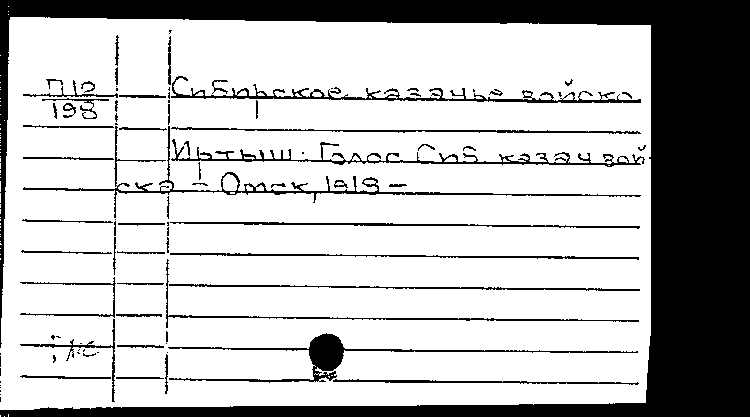 П12
198
Сибирское казачье войско
Иртыш: Голос Сиб. казач вой-
ска - Омск, 1918 -